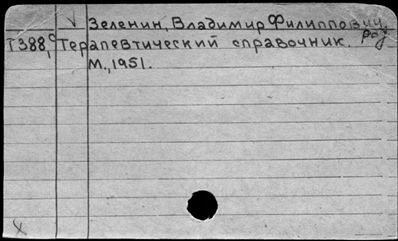 V Зеленин, Владимир Филиппович,
Т388,с Терапевтический справочник. род
М., 1951.
X